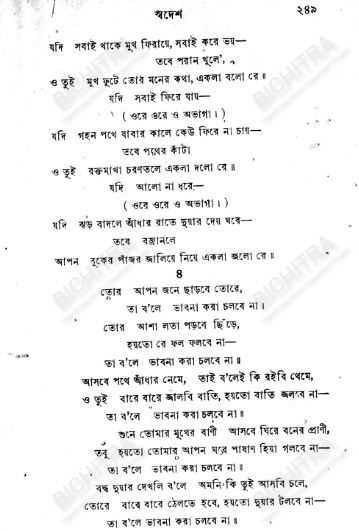 স্বদেশ ২৪৯
যদি সবাই থাকে মুখ ফিরায়ে, সবাই করে ভয়—
তবে পরান খুলে',
ও তুই মুখ ফুটে তোর মনের কথা, একলা বলো রে॥
যদি সবাই ফিরে যায়—
( ওরে ওরে ও অভাগা। )
যদি গহন পথে যাবার কালে কেউ ফিরে না চায়—
তবে পথের কাঁটা
ও তুই রক্তমাখা চরণতলে একলা দলো রে॥
যদি আলো না ধরে—
( ওরে ওরে ও অভাগা। )
যদি ঝড় বাদলে আঁধার রাতে দুয়ার দেয় ঘরে—
তবে বজ্রানলে
আপন বুকের পাঁজর জালিয়ে নিয়ে একলা জলো রে॥
৪
তোর আপন জনে ছাড়বে তোরে,
তা ব'লে ভাবনা করা চলবে না।
তোর আশা লতা পড়বে ছিঁড়ে,
হয়তো রে ফল ফলবে না—
তা ব'লে ভাবনা করা চলবে না॥
আসবে পথে আঁধার নেমে, তাই ব'লেই কি রইবি থেমে,
ও তুই বারে বারে জালবি বাতি, হয়তো বাতি জলবে না—
তা ব'লে ভাবনা করা চলবে না॥
শুনে তোমার মুখের বাণী আসবে ঘিরে বনের প্রাণী,
তবু হয়তো তোমার আপন ঘরে পাষাণ হিয়া গলবে না—
তা ব'লে ভাবনা করা চলবে না॥
বদ্ধ দুয়ার দেখলি ব'লে অমনি কি তুই আসবি চলে,
তোরে বারে বারে ঠেলতে হবে, হয়তো দুয়ার টলবে না—
তা ব'লে ভাবনা করা চলবে না॥
BICHITRA
BICHITRA
BICHITRA
BICHITRA
BICHITRA
BICHITRA